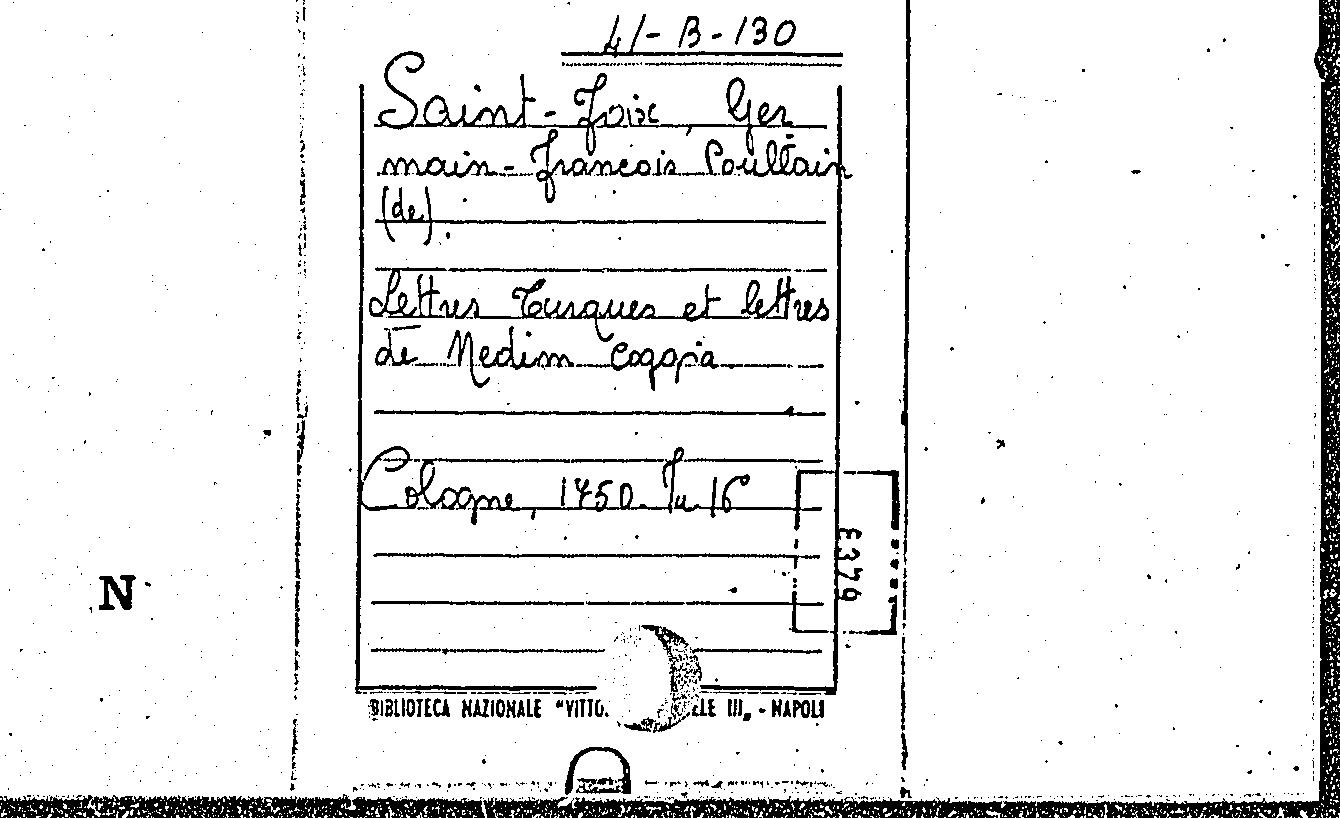 41-B-130
Saint-Foix, Ger
main-Francois Poullain
(de).
Lettres Turques et lettres
de Nedim Coggia.
Cologne, 1750. In 16°
6379
N
BIBLIOTECA NAZIONALE "VITTO. ELE III" - NAPOLI